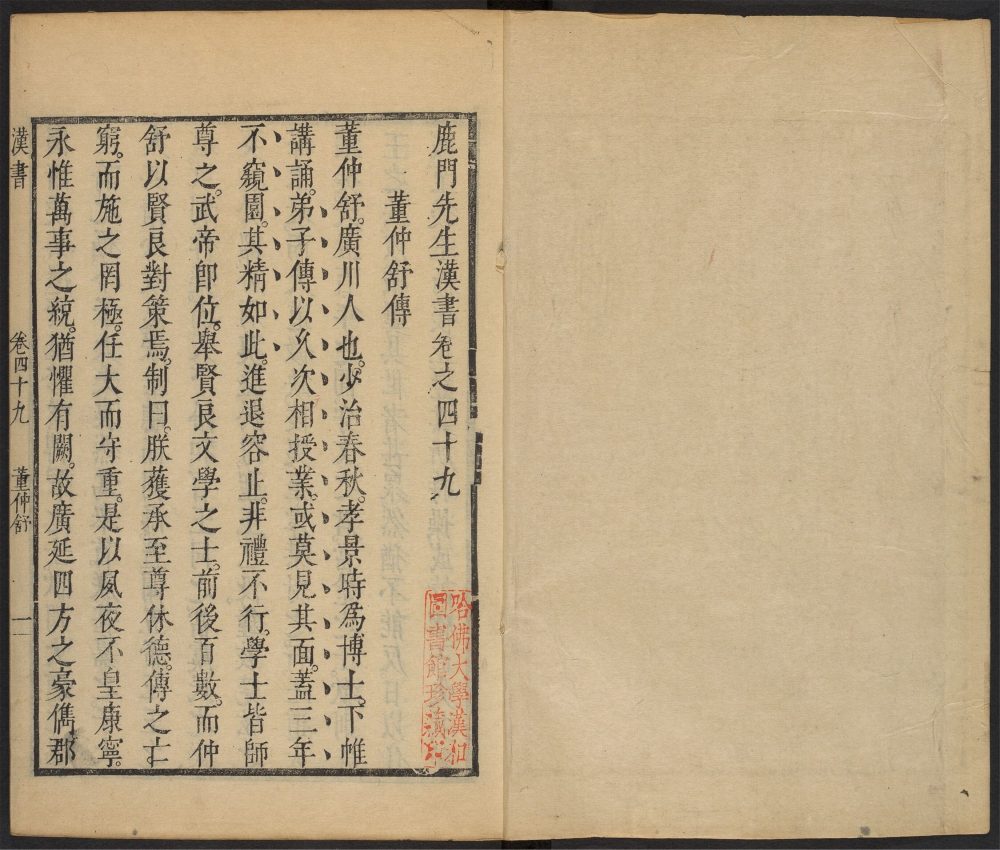 鹿門先生漢書卷之四十九
董仲舒傳
董仲舒。廣川人也。少治春秋。孝景時爲博士。下帷
講誦。弟子傳以久次相授業。或莫見其面。蓋三年
不窺園。其精如此。進退容止。非禮不行。學士皆師
尊之。武帝卽位。舉賢良文學之士。前後百數。而仲
舒以賢良對策焉。制曰。朕獲承至尊休德。傳之亡
窮。而施之罔極。任大而守重。是以夙夜不皇康寧。
永惟萬事之統。猶懼有闕。故廣延四方之豪儁郡
漢書 卷四十九 董仲舒 一
哈佛大學漢和
圖書館珍藏印